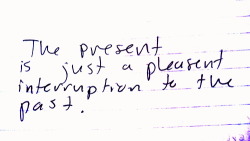 The present
is just a pleasent
interruption to the
past.